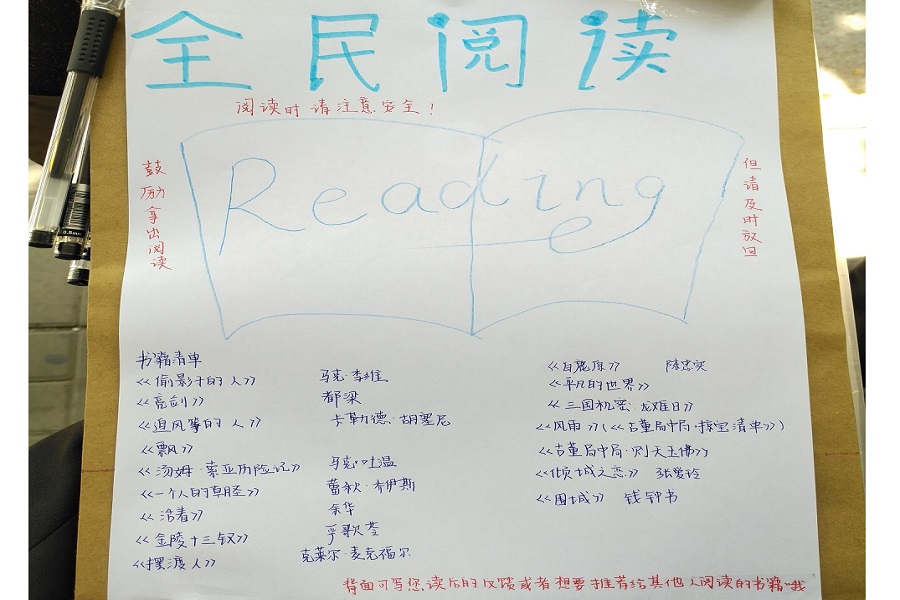 全民阅读
阅读时请注意安全!
鼓励拿出阅读
Reading
但请及时放回
书籍清单
《偷影子的人》 马克·李维
《亮剑》 都梁
《追风筝的人》 卡勒德·胡塞尼
《飘》
《汤姆·索亚历险记》 马克·吐温
《一个人的朝圣》 蕾秋·乔伊斯
《活着》 余华
《金陵十三钗》
《摆渡人》 克莱尔·麦克福尔
《白鹿原》 陈忠实
《平凡的世界》
《三国机密·龙难日》
《风雨》(《古董局中局·掠宝清单》)
《古董局中局·则天玉佛》
《倾城之恋》 张爱玲
《围城》 钱钟书
背面可写您读后的反馈或者想要推荐给其他人阅读的书籍哦